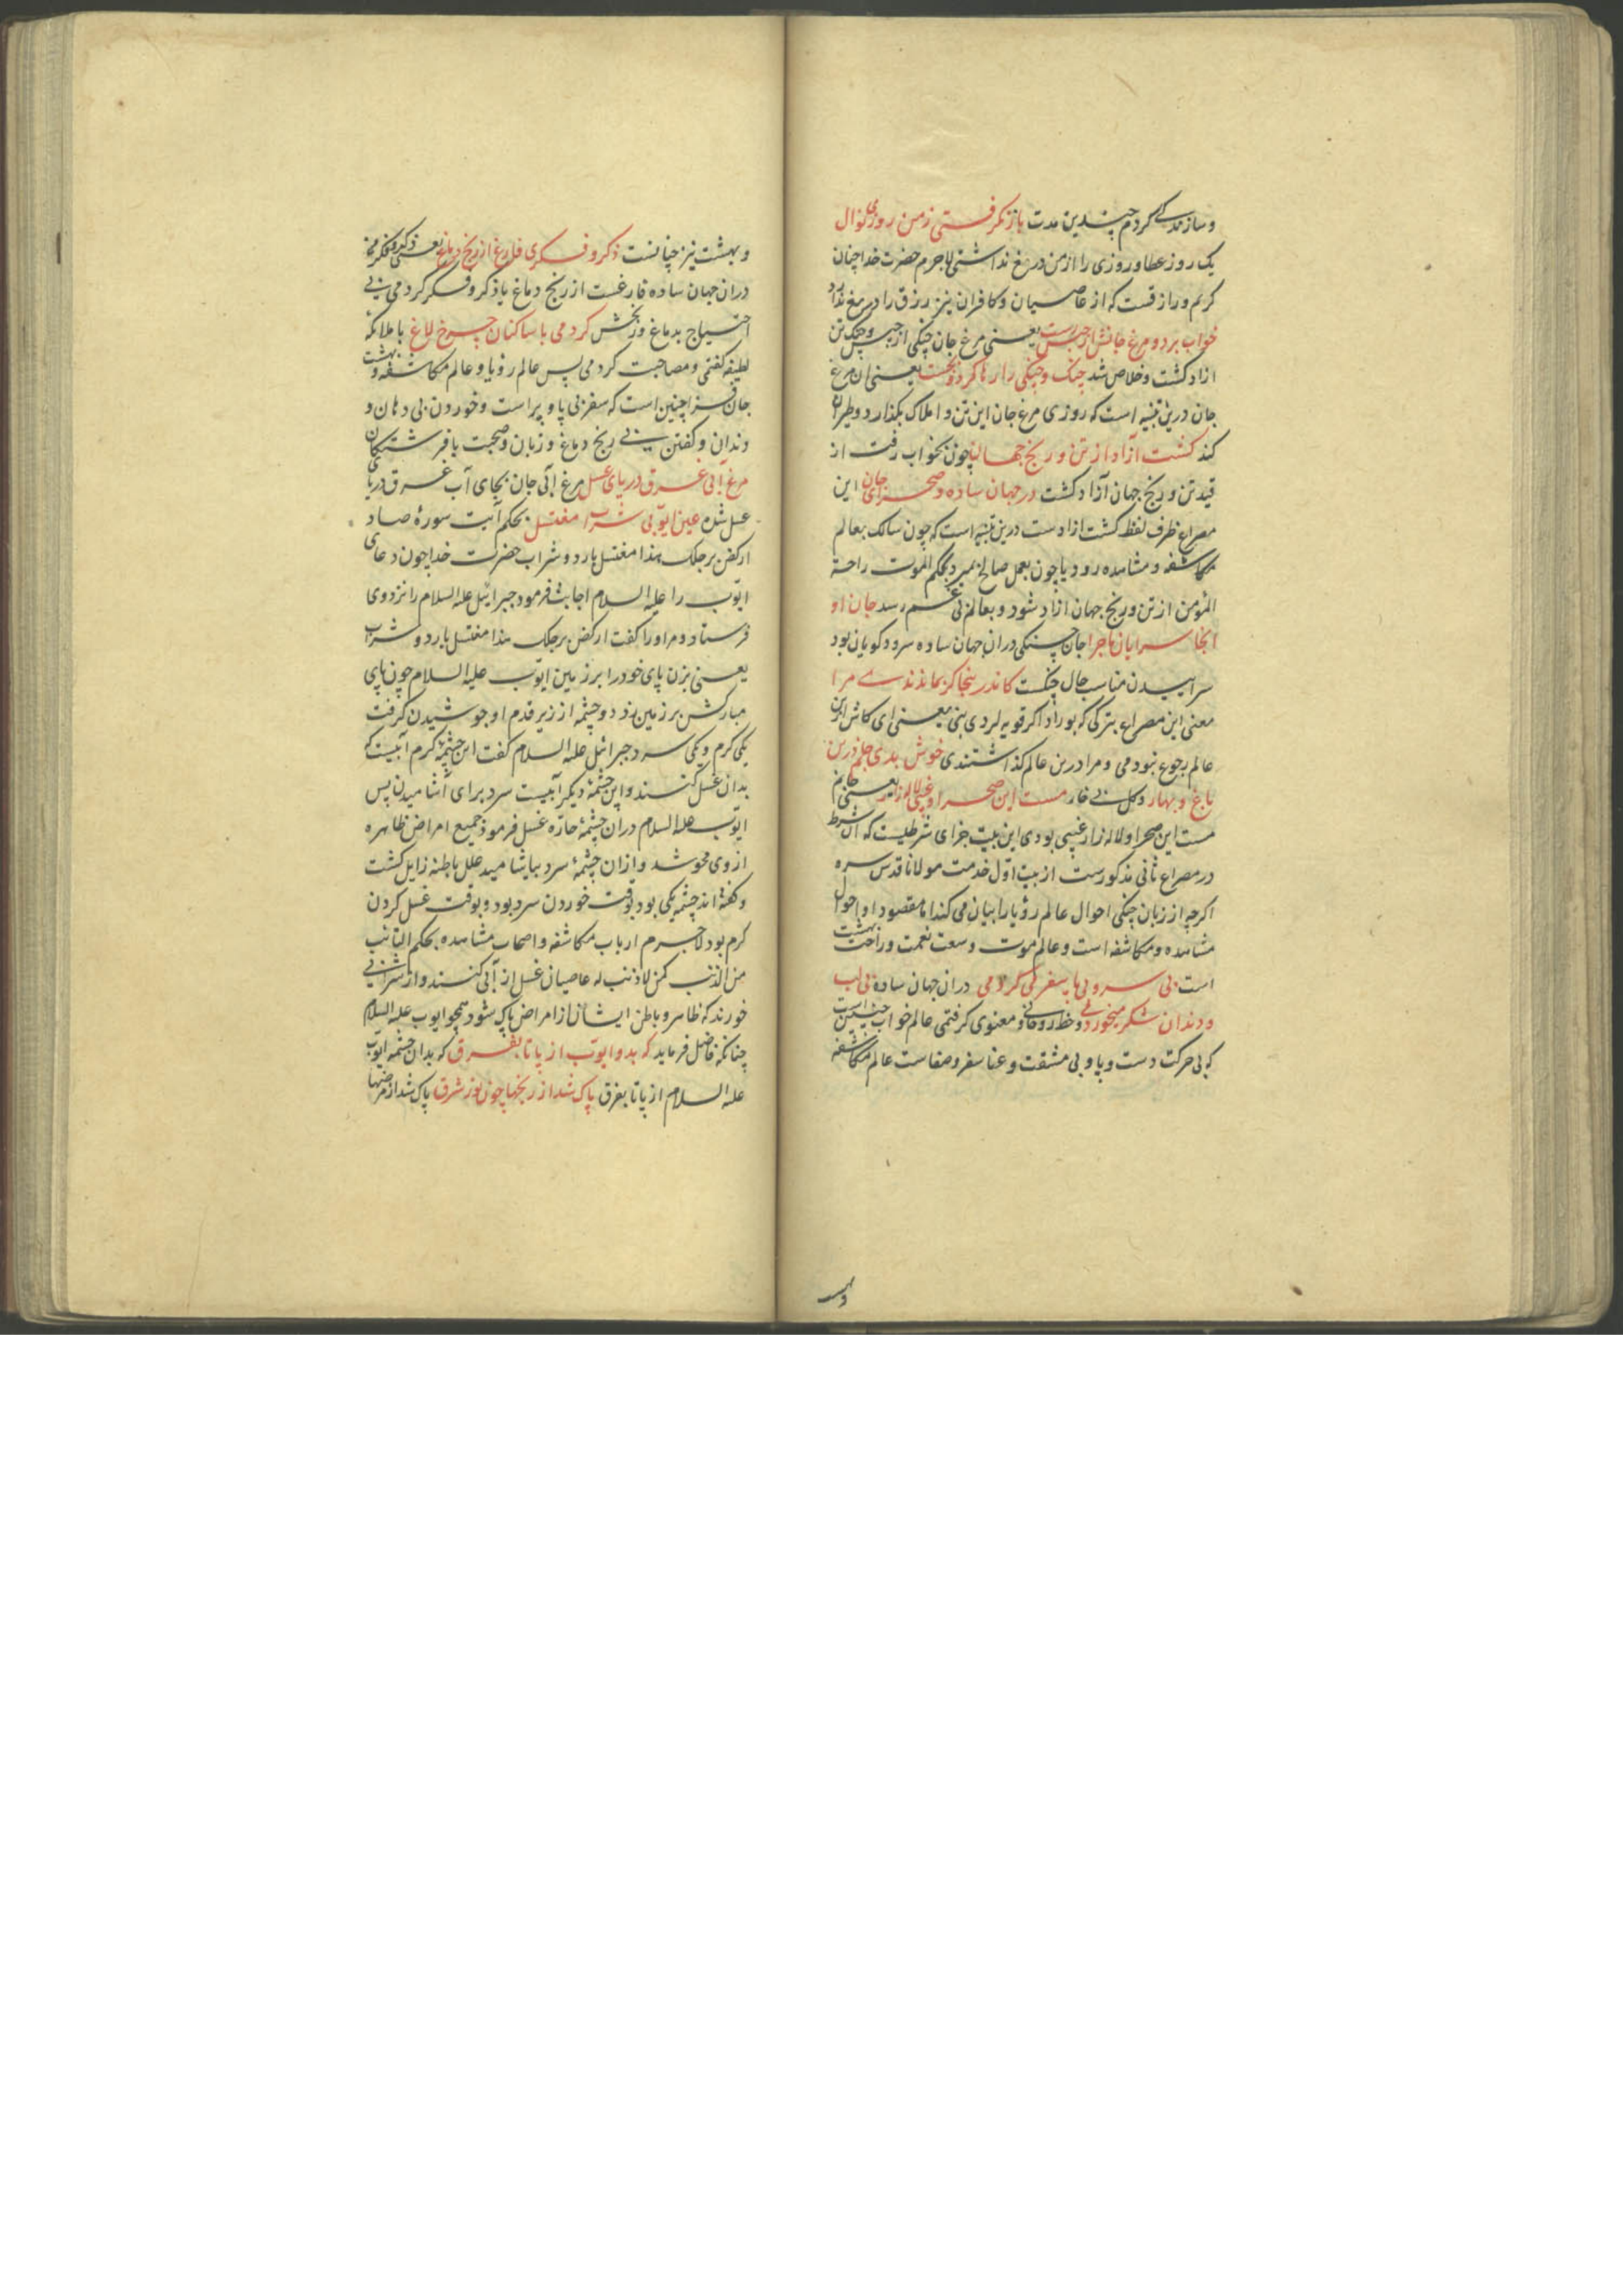 و سازنده کردم چندین مدت باز نگرفتی ز من روزی نوال
یک روز عطا و روزی را از من دریغ نداشتی لاجرم حضرت خدا چنان
کریم و رازقست که از عاصیان و کافران نیز رزق را دریغ ندارد
خواب برد و مرغ جانش از حبس رست یعنی مرغ جان چنگی از حبس و چنگ تن
ازاد گشت و خلاص شد چنگ و چنگی را رها کرد و بجست یعنی ان مرغ
جان درین تنبیه است که روزی مرغ جان این تن و املاک بگذارد و طیران
کند گشت آزاد از تن و رنج جهان چون بخواب رفت از
قید تن و رنج جهان آزاد گشت در جهان ساده و صحرای جان این
مصراع ظرف لفظ گشت ازادست درین تنبیه است که چون سالک بعالم
مکاشفه و مشاهده رود یا چون بعمل صالح بمیرد بحکم الموت راحة
المؤمن از تن و رنج جهان ازاد شود و بعالم بی غم رسد جان او
آنجا سرایان ماجرا جان چنگی دران جهان ساده سرود گویان بود
سراییدن مناسب حال چنگست کاندر ینجا گر بماندندے مرا
معنی این مصراع بترکی که بوراد اکر قویه لردی بنی یعنی ای کاش ازین
عالم رجوع نبودمی و مرا درین عالم گذاشتندی خوش بدی جانم درین
باغ و بهار و گل بی خار مست این صحرا و غیبی لاله زار یعنی جانم
مست این صحرا و لاله زار غیبی بودی این بیت جزای شرطیست که آن شرط
در مصراع ثانی مذکورست از بیت اول خدمت مولانا قدس سره
اکرچه از زبان چنگی احوال عالم رؤیا را بیان می کند اما مقصود او احوال
مشاهده و مکاشفه است و عالم موت و سعت نعمت و راحت بهشت
است بی سر و بی پا سفر می کردمی دران جهان ساده بی لب
و دندان شکر میخوردمی و حظ روحانی و معنوی گرفتمی عالم خواب چنین است
که بی حرکت دست و پا و بی مشقت و عنا سفر و صفاست عالم مکاشفه
وبهشت
و بهشت نیز چنانست ذکر و فکری فارغ از رنج دماغ یعنی ذکری و فکری
دران جهان ساده فارغست از رنج دماغ یا ذکر و فکر کردمی بی
احتیاج بدماغ و رنجش کردمی با ساکنان چرخ لاغ با ملائکه
لطیفه گفتمی و مصاحبت کردمی پس عالم رؤیا و عالم مکاشفه و بهشت
جان فزا چنین است که سفر بی پا و پر است و خوردن بی دهان و
دندان و گفتن بی رنج دماغ و زبان و صحبت با فرشتگان
مرغ آبی غرق دریای عسل مرغ آبی جان بجای آب غرق دریای
عسل شده عین ایّوبی شراب و مغتسل بحکم آیت سورهٔ صاد
ارکض برجلک هذا مغتسل بارد و شراب حضرت خدا چون دعای
ایّوب را علیه السلام اجابت فرمود جبرائیل علیه السلام را نزد وی
فرستاد و مر اورا گفت ارکض برجلک هذا مغتسل بارد و شراب
یعنی بزن پای خود را بر زمین ایّوب علیه السلام چون پای
مبارکش بر زمین زد دو چشمه از زیر قدم او جوشیدن گرفت
یکی گرم و یکی سرد جبرائیل علیه السلام گفت این چشمهٔ گرم آبیست که
بدان غسل کنند و این چشمهٔ دیگر آبیست سرد برای آشامیدن پس
ایّوب علیه السلام دران چشمهٔ حارّه غسل فرمود جمیع امراض ظاهره
از وی محو شد و ازان چشمهٔ سرد بیاشامید علل باطنه زایل گشت
و گفته اند چشمه یکی بود بوقت خوردن سرد بود و بوقت غسل کردن
گرم بود لاجرم ارباب مکاشفه و اصحاب مشاهده بحکم التائب
من الذنب کمن لا ذنب له عاصیان غسل از آبی کنند و از شرابی
خورند که ظاهر و باطن ایشان از امراض پاک شود همچو ایوب علیه السلام
چنانکه فاضل فرماید که بدو ایوّب از پا تا بفرق که بدان چشمه ایوّب
علیه السلام از پا تا بفرق پاک شد از رنجها چون نور شرق پاک شد از مرضها